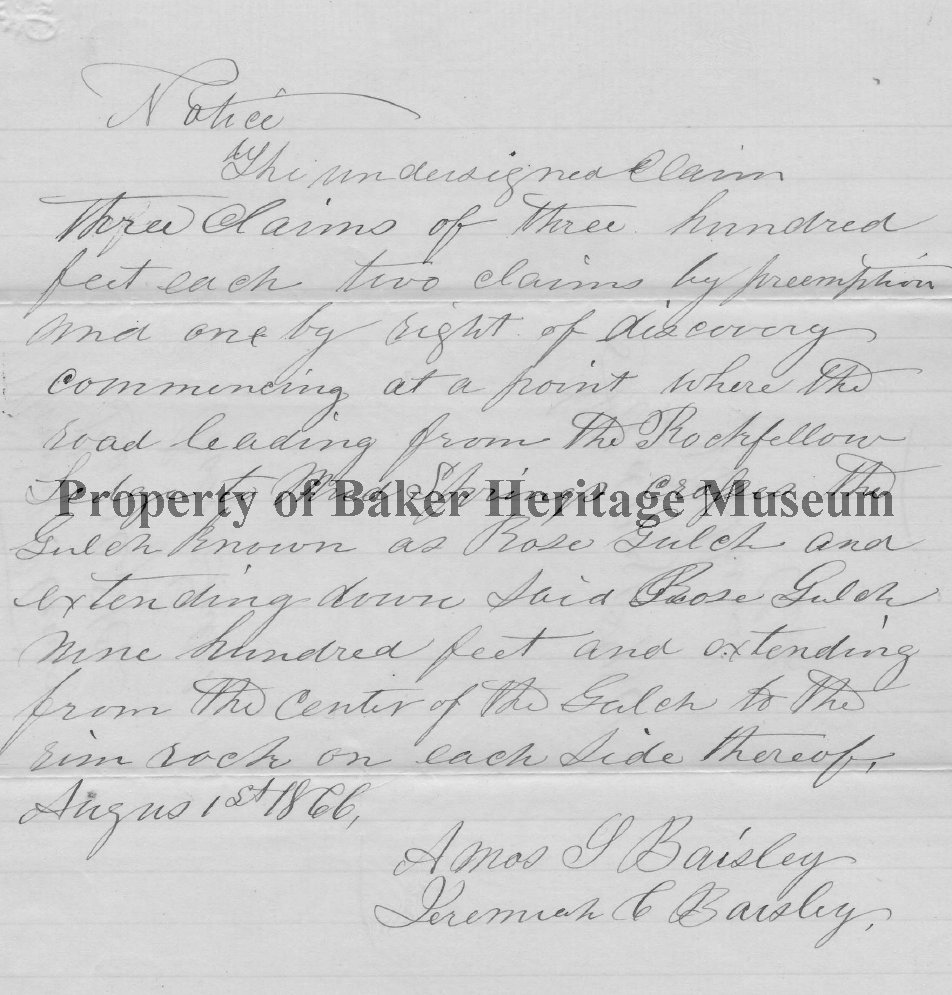 Notice
The undersigned Claim
three Claims of three hundred
feet each two claims by preemption
and one by right of discovery
commencing at a point where the
road leading from the Rockfellow
Ledge to Springs the
Property of Baker Heritage Museum
Gulch known as Rose Gulch and
extending down said Rose Gulch
nine hundred feet and extending
from the center of the Gulch to the
rim rock on each side thereof.
Augus 1st 1866,
Amos S Baisley
Jeremiah C Baisley,